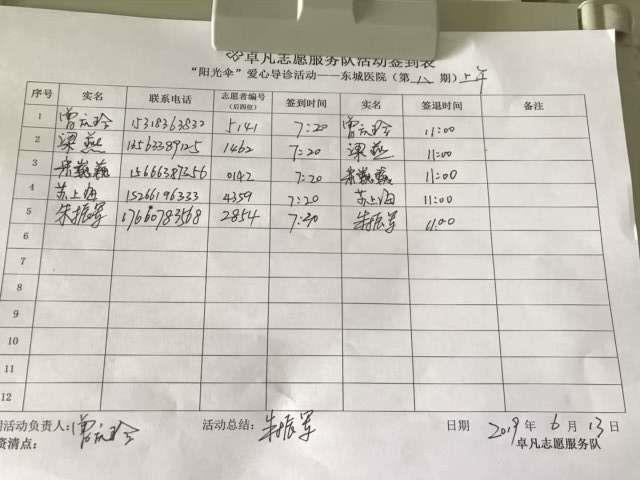 卓凡志愿服务队活动签到表
“阳光伞”爱心导诊活动——东城医院（第八期）上午
序号 实名 联系电话 志愿者编号（后四位） 签到时间 实名 签退时间 备注
1 曾庆玲 15318363832 5141 7:20 曾庆玲 11:00
2 梁燕 13563389125 1462 7:20 梁燕 11:00
3 15666387356 0142 7:20 11:00
4 苏上海 15266196333 4359 7:20 苏上海 11:00
5 朱振军 17660783568 2854 7:20 朱振军 11:00
6
7
8
9
10
11
12
活动负责人:曾庆玲 活动总结: 朱振军 日期 2019年6月13日
资清点: 卓凡志愿服务队